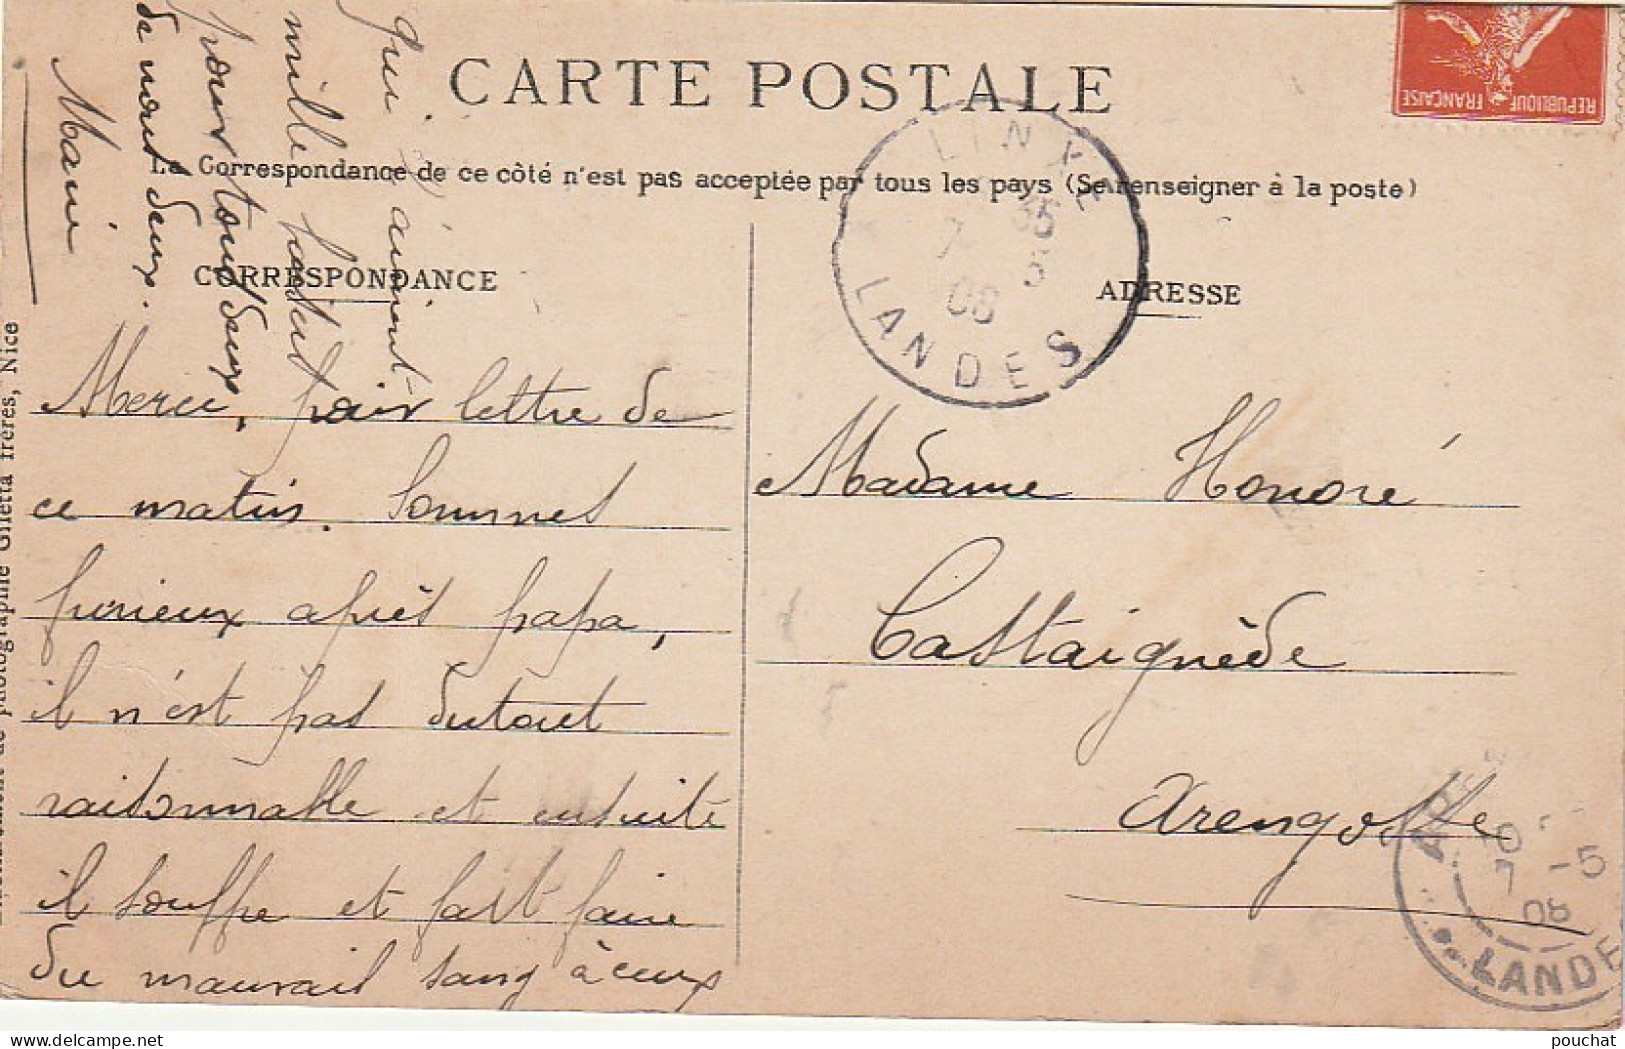 CARTE POSTALE
La Correspondance de ce côté n'est pas acceptée par tous les pays (Se renseigner à la poste)
CORRESPONDANCE
ADRESSE
REPUBLIQUE FRANÇAISE
LINXE
35
7 5
08
LANDES
Merci, pour lettre de
ce matin. Sommes
furieux après papa,
il n'est pas dutout
raisonnable et ensuite
il souffre et fait faire
du mauvais sang à ceux
qui l'aiment
mille baisers
pour tous deux
de nous deux.
Marie
Madame Honoré
Castaignède
Arengosse
7 -5
08
LANDES
de photographie Giletta frères, Nice
pouchat
www.delcampe.net